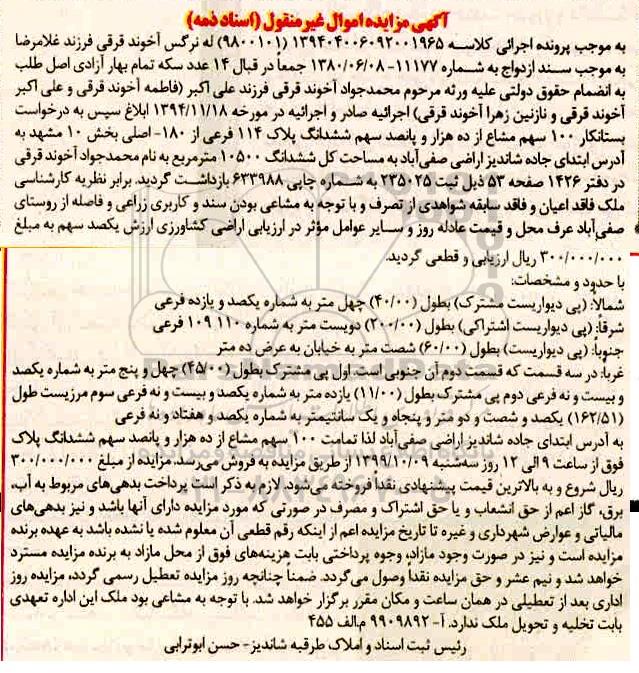 آگهی مزایده اموال غیرمنقول (اسناد ذمه)
به موجب پرونده اجرائی کلاسه ۱۳۹۴۰۴۰۰۶۰۹۲۰۰۱۹۶۵ (۹۸۰۰۱۰۱) له نرگس آخوند قرقی فرزند غلامرضا
به موجب سند ازدواج به شماره ۱۱۱۷۷-۱۳۸۰/۰۶/۰۸ جمعاً در قبال ۱۴ عدد سکه تمام بهار آزادی اصل طلب
به انضمام حقوق دولتی علیه ورثه مرحوم محمدجواد آخوند قرقی فرزند علی اکبر (فاطمه آخوند قرقی و علی اکبر
آخوند قرقی و نازنین زهرا آخوند قرقی) اجرائیه صادر و اجرائیه در مورخه ۱۳۹۴/۱۱/۱۸ ابلاغ سپس به درخواست
بستانکار ۱۰۰ سهم مشاع از ده هزار و پانصد سهم ششدانگ پلاک ۱۱۴ فرعی از ۱۸۰- اصلی بخش ۱۰ مشهد به
آدرس ابتدای جاده شاندیز اراضی صفی‌آباد به مساحت کل ششدانگ ۱۰۵۰۰ مترمربع به نام محمدجواد آخوند قرقی
در دفتر ۱۴۲۶ صفحه ۵۳ ذیل ثبت ۲۳۵۰۲۵ به شماره چاپی ۶۳۳۹۸۸ بازداشت گردید. برابر نظریه کارشناسی
ملک فاقد اعیان و فاقد سابقه شواهدی از تصرف و با توجه به مشاعی بودن سند و کاربری زراعی و فاصله از روستای
صفی‌آباد عرف محل و قیمت عادله روز و سایر عوامل مؤثر در ارزیابی اراضی کشاورزی ارزش یکصد سهم به مبلغ
۳۰۰/۰۰۰/۰۰۰ ریال ارزیابی و قطعی گردید.
با حدود و مشخصات:
شمالاً: (پی دیواریست مشترک) بطول (۴۰/۰۰) چهل متر به شماره یکصد و یازده فرعی
شرقاً: (پی دیواریست اشتراکی) بطول (۲۰۰/۰۰) دویست متر به شماره ۱۱۰ ۱۰۹ فرعی
جنوباً: (پی دیواریست) بطول (۶۰/۰۰) شصت متر به خیابان به عرض ده متر
غرباً: در سه قسمت که قسمت دوم آن جنوبی است. اول پی مشترک بطول (۴۵/۰۰) چهل و پنج متر به شماره یکصد
و بیست و نه فرعی دوم پی مشترک بطول (۱۱/۰۰) یازده متر به شماره یکصد و بیست و نه فرعی سوم مرزیست طول
(۱۶۲/۵۱) یکصد و شصت و دو متر و پنجاه و یک سانتیمتر به شماره یکصد و هفتاد و نه فرعی
به آدرس ابتدای جاده شاندیز اراضی صفی‌آباد لذا تمامت ۱۰۰ سهم مشاع از ده هزار و پانصد سهم ششدانگ پلاک
فوق از ساعت ۹ الی ۱۲ روز سه‌شنبه ۱۳۹۹/۱۰/۰۹ از طریق مزایده به فروش می‌رسد. مزایده از مبلغ ۳۰۰/۰۰۰/۰۰۰
ریال شروع و به بالاترین قیمت پیشنهادی نقداً فروخته می‌شود. لازم به ذکر است پرداخت بدهی‌های مربوط به آب،
برق، گاز اعم از حق انشعاب و یا حق اشتراک و مصرف در صورتی که مورد مزایده دارای آنها باشد و نیز بدهی‌های
مالیاتی و عوارض شهرداری و غیره تا تاریخ مزایده اعم از اینکه رقم قطعی آن معلوم شده یا نشده باشد به عهده برنده
مزایده است و نیز در صورت وجود مازاد، وجوه پرداختی بابت هزینه‌های فوق از محل مازاد به برنده مزایده مسترد
خواهد شد و نیم عشر و حق مزایده نقداً وصول می‌گردد. ضمناً چنانچه روز مزایده تعطیل رسمی گردد، مزایده روز
اداری بعد از تعطیلی در همان ساعت و مکان مقرر برگزار خواهد شد. با توجه به مشاعی بود ملک این اداره تعهدی
بابت تخلیه و تحویل ملک ندارد. آ-۹۹۰۹۸۹۲ م.الف ۴۵۵
رئیس ثبت اسناد و املاک طرقبه شاندیز- حسن ابوترابی